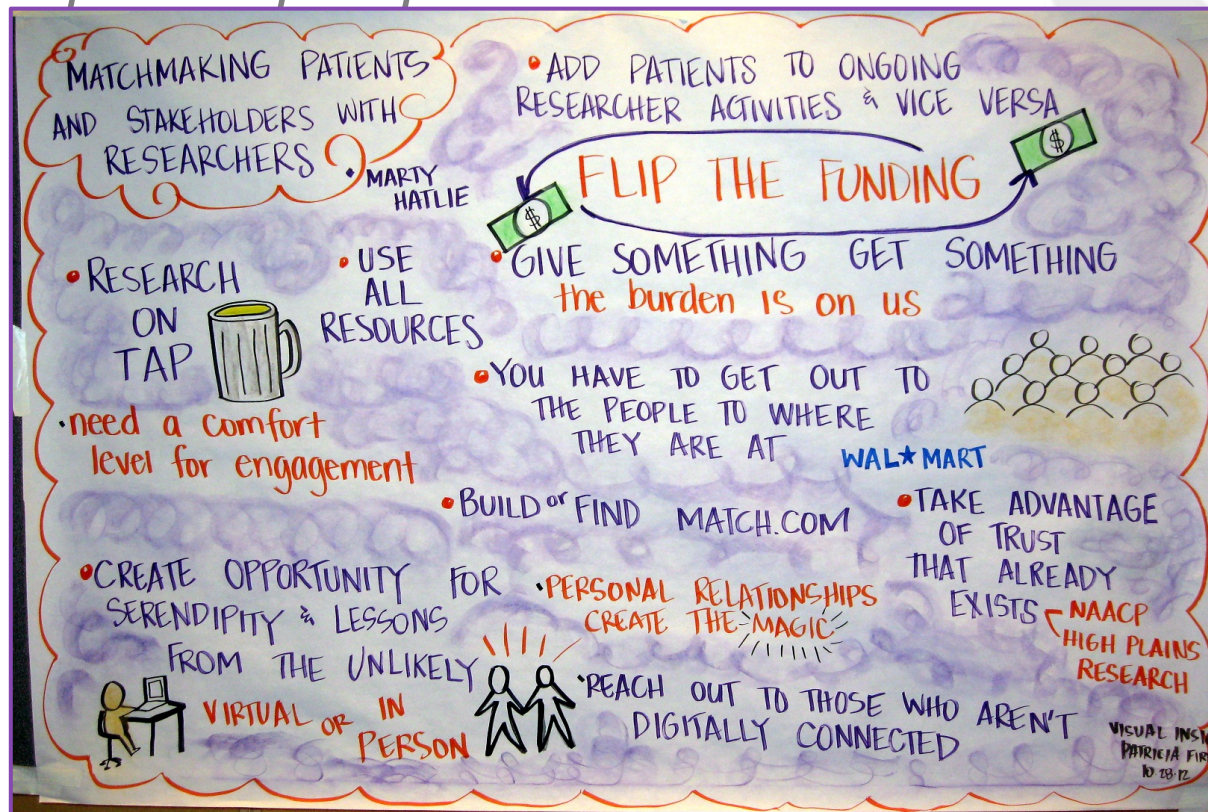 MATCHMAKING PATIENTS
AND STAKEHOLDERS WITH
RESEARCHERS
• MARTY
HATLIE
• ADD PATIENTS TO ONGOING
RESEARCHER ACTIVITIES & VICE VERSA
$ FLIP THE FUNDING $
• GIVE SOMETHING GET SOMETHING
the burden IS on us
• RESEARCH
ON
TAP
• USE
ALL
RESOURCES
• need a comfort
level for engagement
• YOU HAVE TO GET OUT TO
THE PEOPLE TO WHERE
THEY ARE AT
WAL★MART
• BUILD or FIND MATCH.COM
• TAKE ADVANTAGE
OF TRUST
THAT ALREADY
EXISTS
NAACP
HIGH PLAINS
RESEARCH
• CREATE OPPORTUNITY FOR
SERENDIPITY & LESSONS
FROM THE UNLIKELY
VIRTUAL OR IN
PERSON
• PERSONAL RELATIONSHIPS
CREATE THE MAGIC
• REACH OUT TO THOSE WHO AREN'T
DIGITALLY CONNECTED
VISUAL
PATRICIA
10.28.12